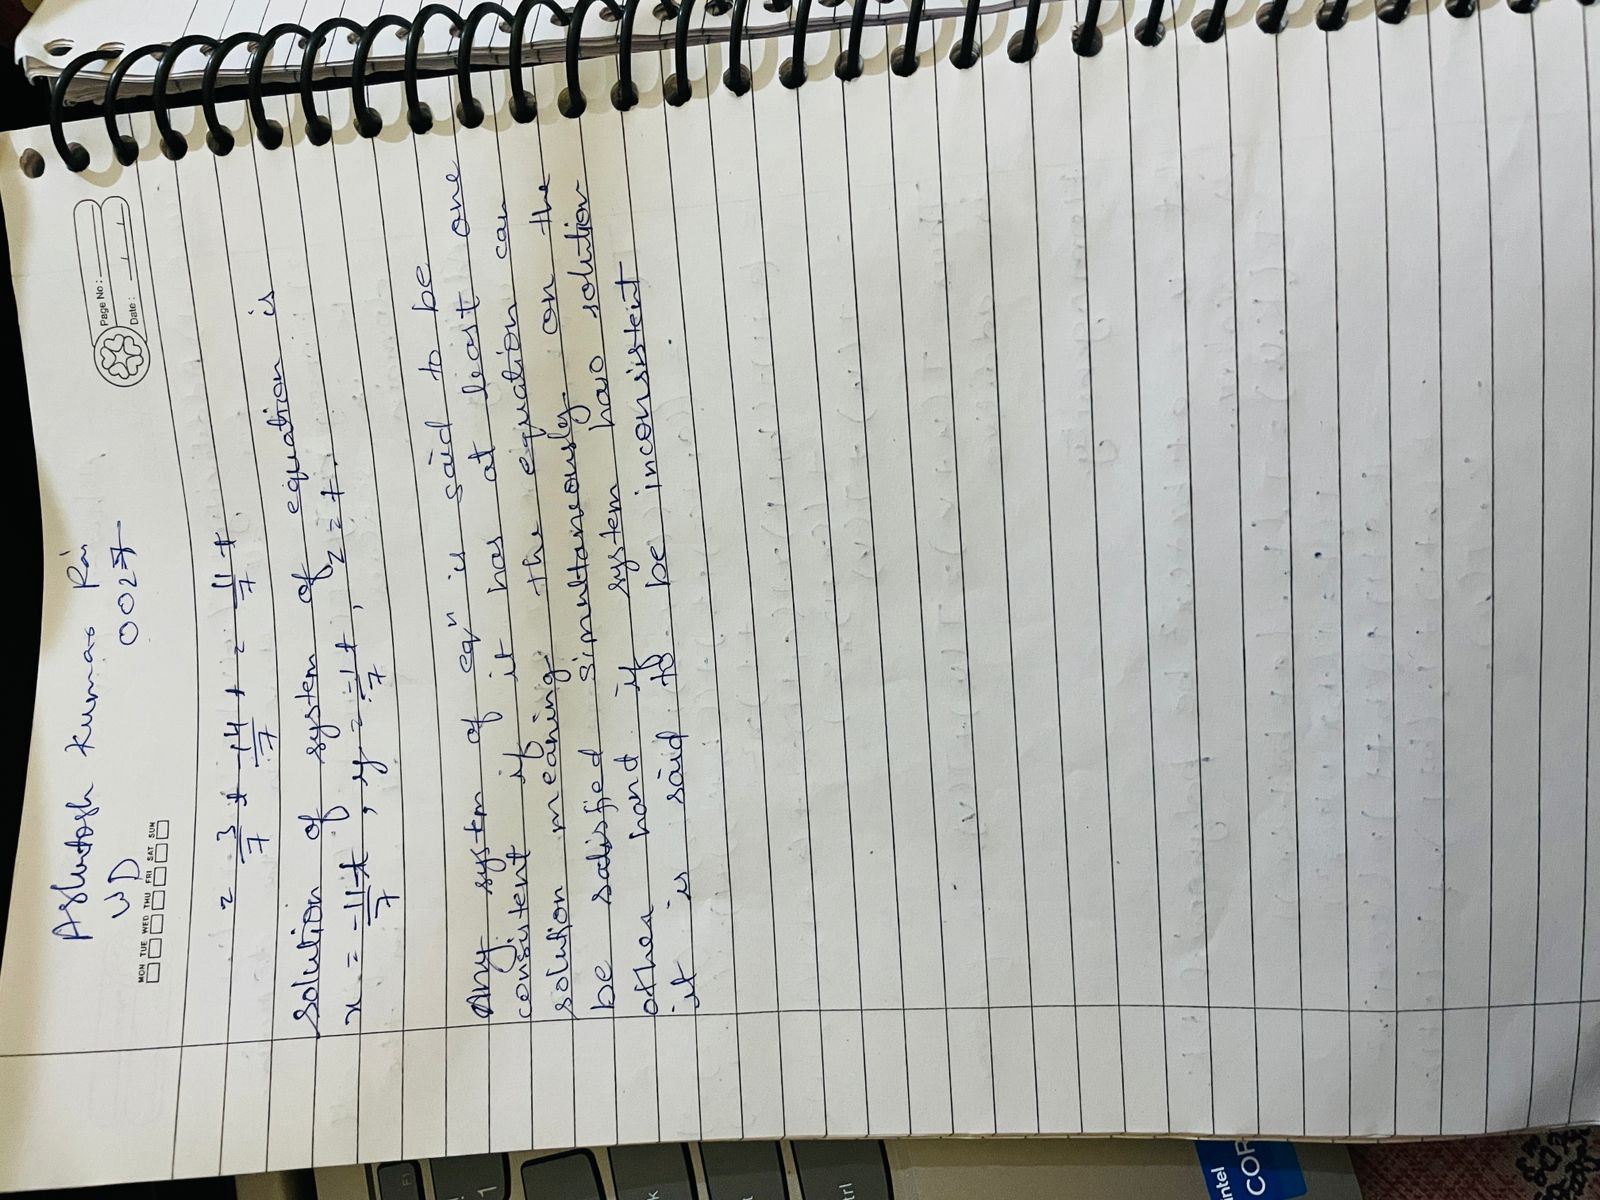 Ashutosh Kumar Rai
WD 0027
Page No:
Date: / /
MON TUE WED THU FRI SAT SUN
= 3/7 t + 14/7 t = 11/7 t
solution of system of equation is
x = -11t/7 , y = -1t/7 , z = t
Any system of eqn is said to be
consistent if it has at least one
solution meaning the equation can
be satisfied simultaneously on the
other hand if system hav solution
it is said to be inconsistent
1
k
trl
intel
COR